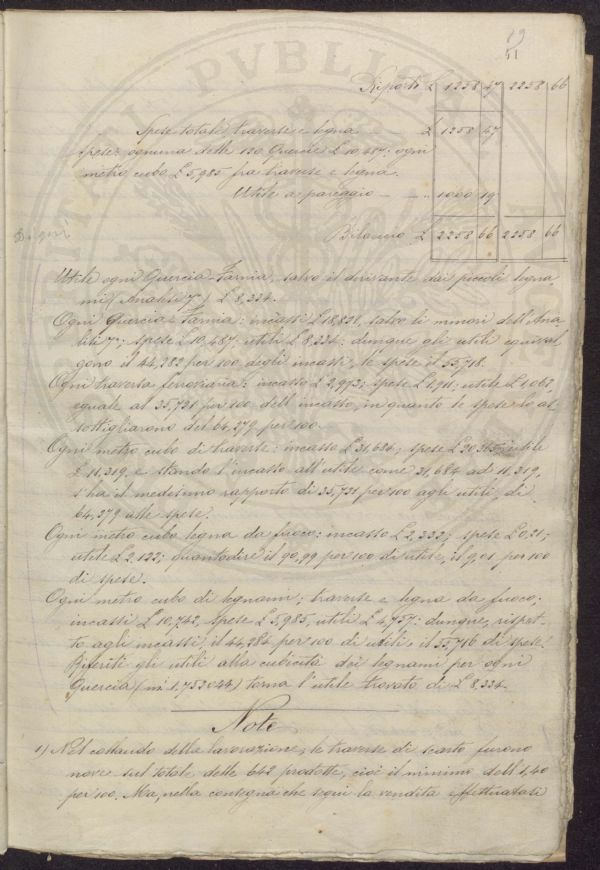 19
51
Riporti £ 1258 47 2258 66
Spese totali traverse e legna £ 1258 47
Spese: ognuna delle 120 Quercie £ 10,487: ogni
metro cubo £ 5,985 fra traverse e legna.
Utile a pareggio 1000 19
Bilancio £ 2258 66 2258 66
Utile ogni Quercia-Farnia, salvo il derivante dai piccoli legna
mi (Analisi 7ª) £ 8,334.
Ogni Quercia-Farnia: incassi £ 18,821, salvo li minori dell'Ana
lisi 7ª; spese £ 10,487: utili £ 8,334: dunque gli utili equival
gono il 44,282 per 100 degli incassi, le spese il 55,718.
Ogni traversa ferroviaria: incasso £ 2,973; spese £ 1,911: utile £ 1,062,
eguale al 35,721 per 100 dell'incasso, in quanto le spese lo as
sottigliarono del 64,279 per 100.
Ogni metro cubo di traverse: incasso £ 31,684, spese £ 20,365; utile
£ 11,319, e stando l'incasso all'utile come 31,684 ad 11,319,
s'ha il medesimo rapporto di 35,721 per 100 agli utili, di
64,279 alle spese.
Ogni metro cubo legna da fuoco: incasso £ 2,332; spese £ 0,21;
utile £ 2,122; quantodire il 90,99 per 100 di utile, il 9,01 per 100
di spese.
Ogni metro cubo di legnami; traverse e legna da fuoco;
incassi £ 10,742, spese £ 5,985, utili £ 4,757: dunque, rispet-
to agli incassi, il 44,284 per 100 di utili, il 55,716 di spese.
Riferiti gli utili alla cubicità dei legnami per ogni
Quercia (m³ 1.752044) torna l'utile trovato di £ 8,334.
Note
1) Nel collaudo della lavorazione, le traverse di scarto furono
nove sul totale delle 642 prodotte, cioè il minimo dell'1,40
per 100. Ma, nella consegna che seguì la vendita effettuatasi